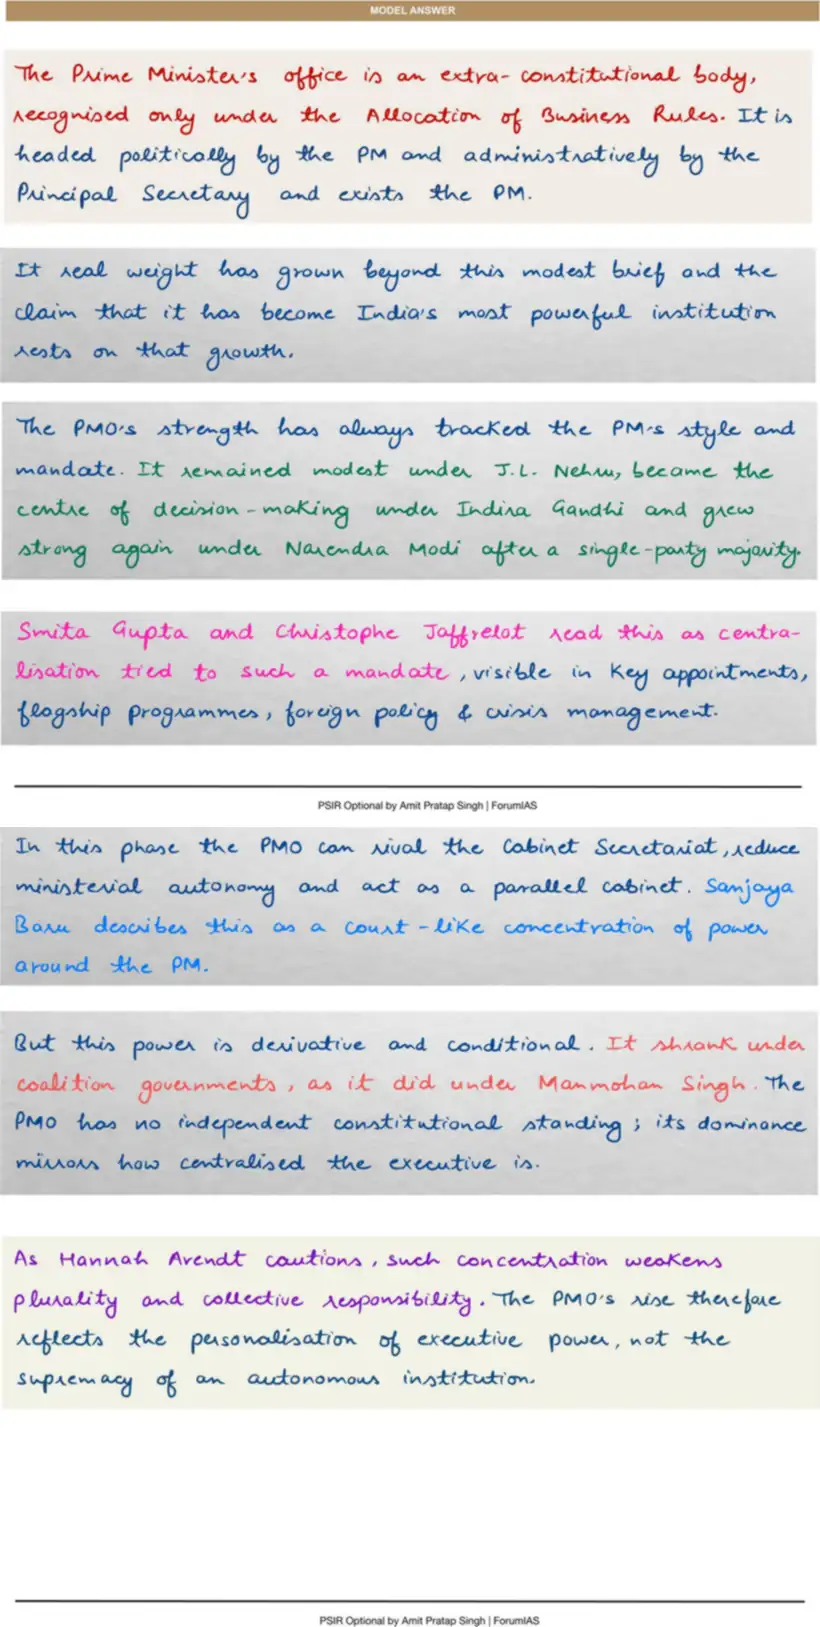 MODEL ANSWER
The Prime Minister's office is an extra-constitutional body,
recognised only under the Allocation of Business Rules. It is
headed politically by the PM and administratively by the
Principal Secretary and exists the PM.
It real weight has grown beyond this modest brief and the
claim that it has become India's most powerful institution
rests on that growth.
The PMO's strength has always tracked the PM's style and
mandate. It remained modest under J.L. Nehru, became the
centre of decision-making under Indira Gandhi and grew
strong again under Narendra Modi after a single-party majority.
Smita Gupta and Christophe Jaffrelot read this as centra-
lisation tied to such a mandate, visible in key appointments,
flagship programmes, foreign policy & crisis management.
PSIR Optional by Amit Pratap Singh | ForumIAS
In this phase the PMO can rival the Cabinet Secretariat, reduce
ministerial autonomy and act as a parallel cabinet. Sanjaya
Baru describes this as a court-like concentration of power
around the PM.
But this power is derivative and conditional. It shrank under
coalition governments, as it did under Manmohan Singh. The
PMO has no independent constitutional standing; its dominance
mirrors how centralised the executive is.
As Hannah Arendt cautions, such concentration weakens
plurality and collective responsibility. The PMO's rise therefore
reflects the personalisation of executive power, not the
supremacy of an autonomous institution.
PSIR Optional by Amit Pratap Singh | ForumIAS